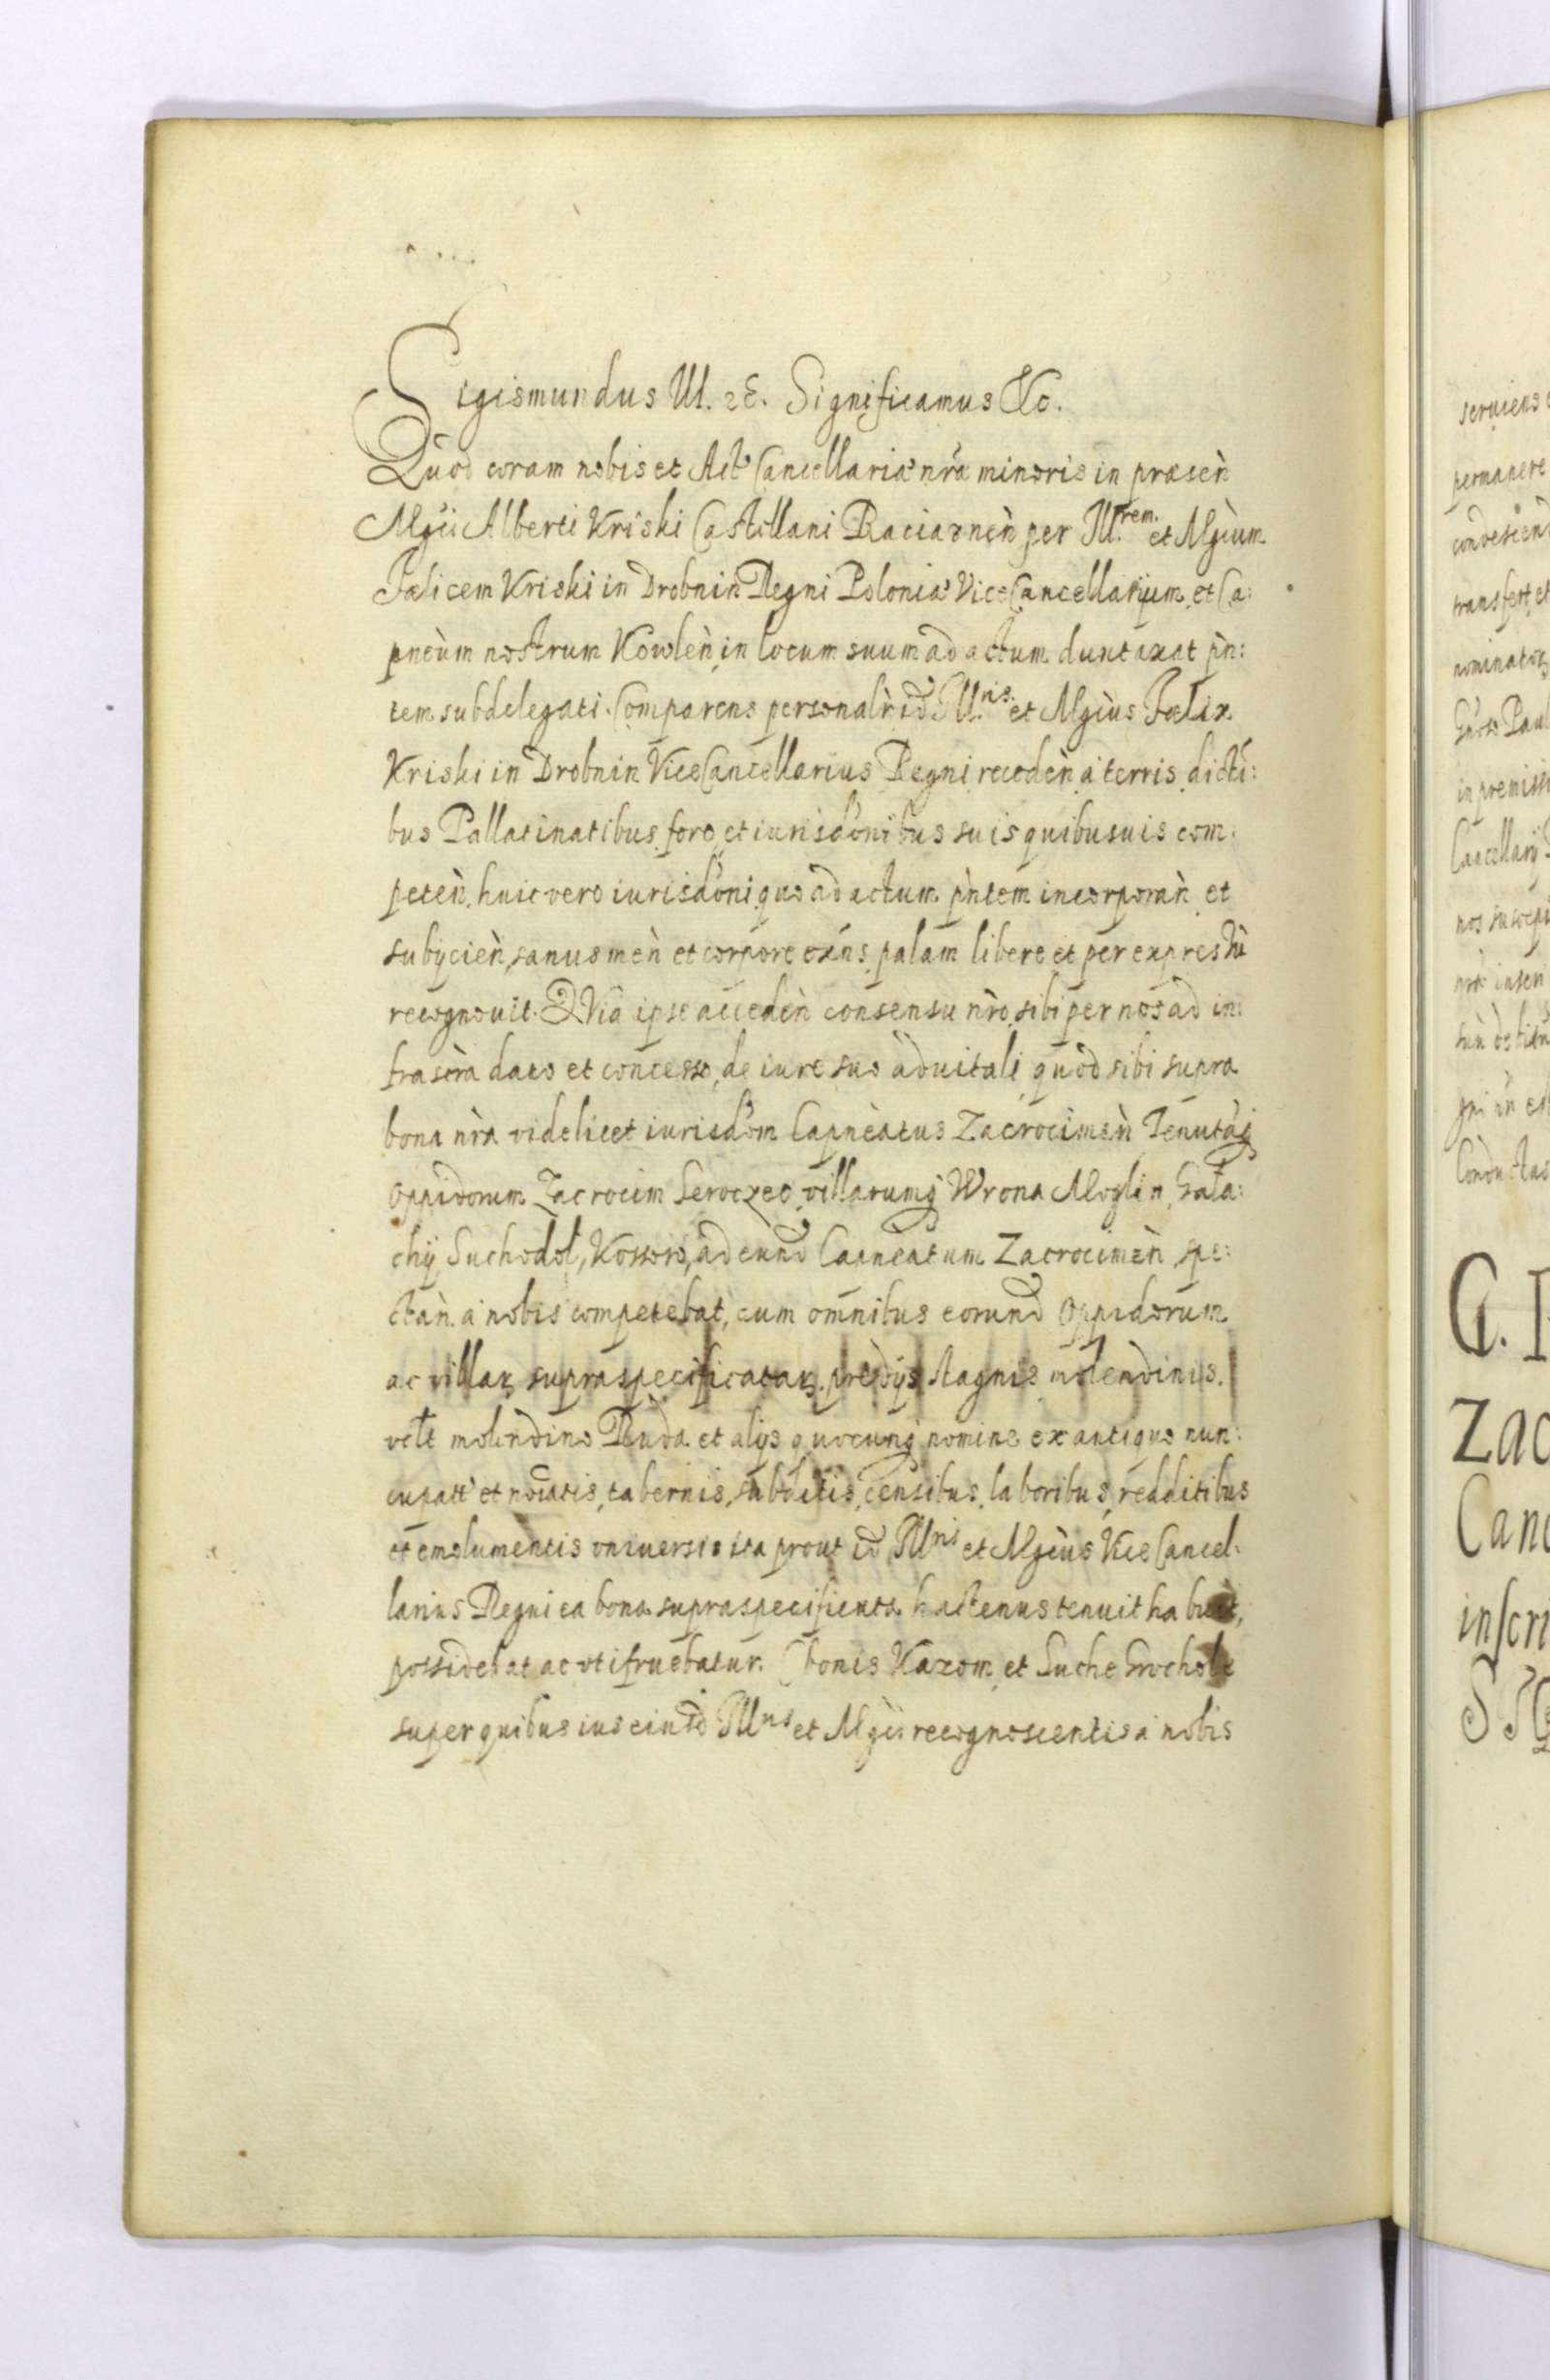 Sigismundus III. &c. Significamus &c.
Quod coram nobis et Act' Cancellariæ nrã minoris in præseñ
Mgci Alberti Kriski Castellani Raciazneñ per Ill.rem. et Mgcum
Fælicem Kriski in Drobnin Regni Poloniæ Vice Cancellarium et Ca:
pneum nostrum Kowleñ, in locum suum ad actum duntaxat pñ:
tem subdelegati. Comparens personalr id Ill.ris. et Mgcus Fælix
Kriski in Drobnin Vice Cancellarius Regni recedeñ a terris, dicti:
bus Pallatinatibus, foro, et iurisdonibus suis quibusuis com:
peteñ, huic vero iurisdoni quo ad actum pñtem incorporañ et
subijcieñ, sanus meñ et corpore exñs, palam libere et per expressũ
recognouit. QVia ipse accedeñ consensu nrõ, sibi per nos ad in:
frascra dato et concesso, de iure suo aduitali, quod sibi supra
bona nrã videlicet iurisdom Capneatus Zacrocimeñ Tenutasq
Oppidorum Zacrocim Seroczeo, villarumq Wrona Moglin, Gała:
chij Suchodoł, Kossow, ad eund Capneatum Zacrocimeñ spe:
ctañ a nobis competebat, cum omnibus eorund Oppidorum
ac villar supraspecificatar. predijs stagnis molendinis.
velt molendino Ruda et alijs quocunq nomine ex antiquo nun:
cupatt' et noĩatis, tabernis, subditis, censibus, laboribus, redditibus
et emolumentis vniuersis ita prout id Illris et Mgcus Vice Cancel:
larius Regni ea bona supraspecificata hactenus tenuit habuit,
possidebat ac vtifruebatur. bonis Kazom, et Suche Grochole
super quibus ius eiusd Illris et Mgci recognoscentis a nobis